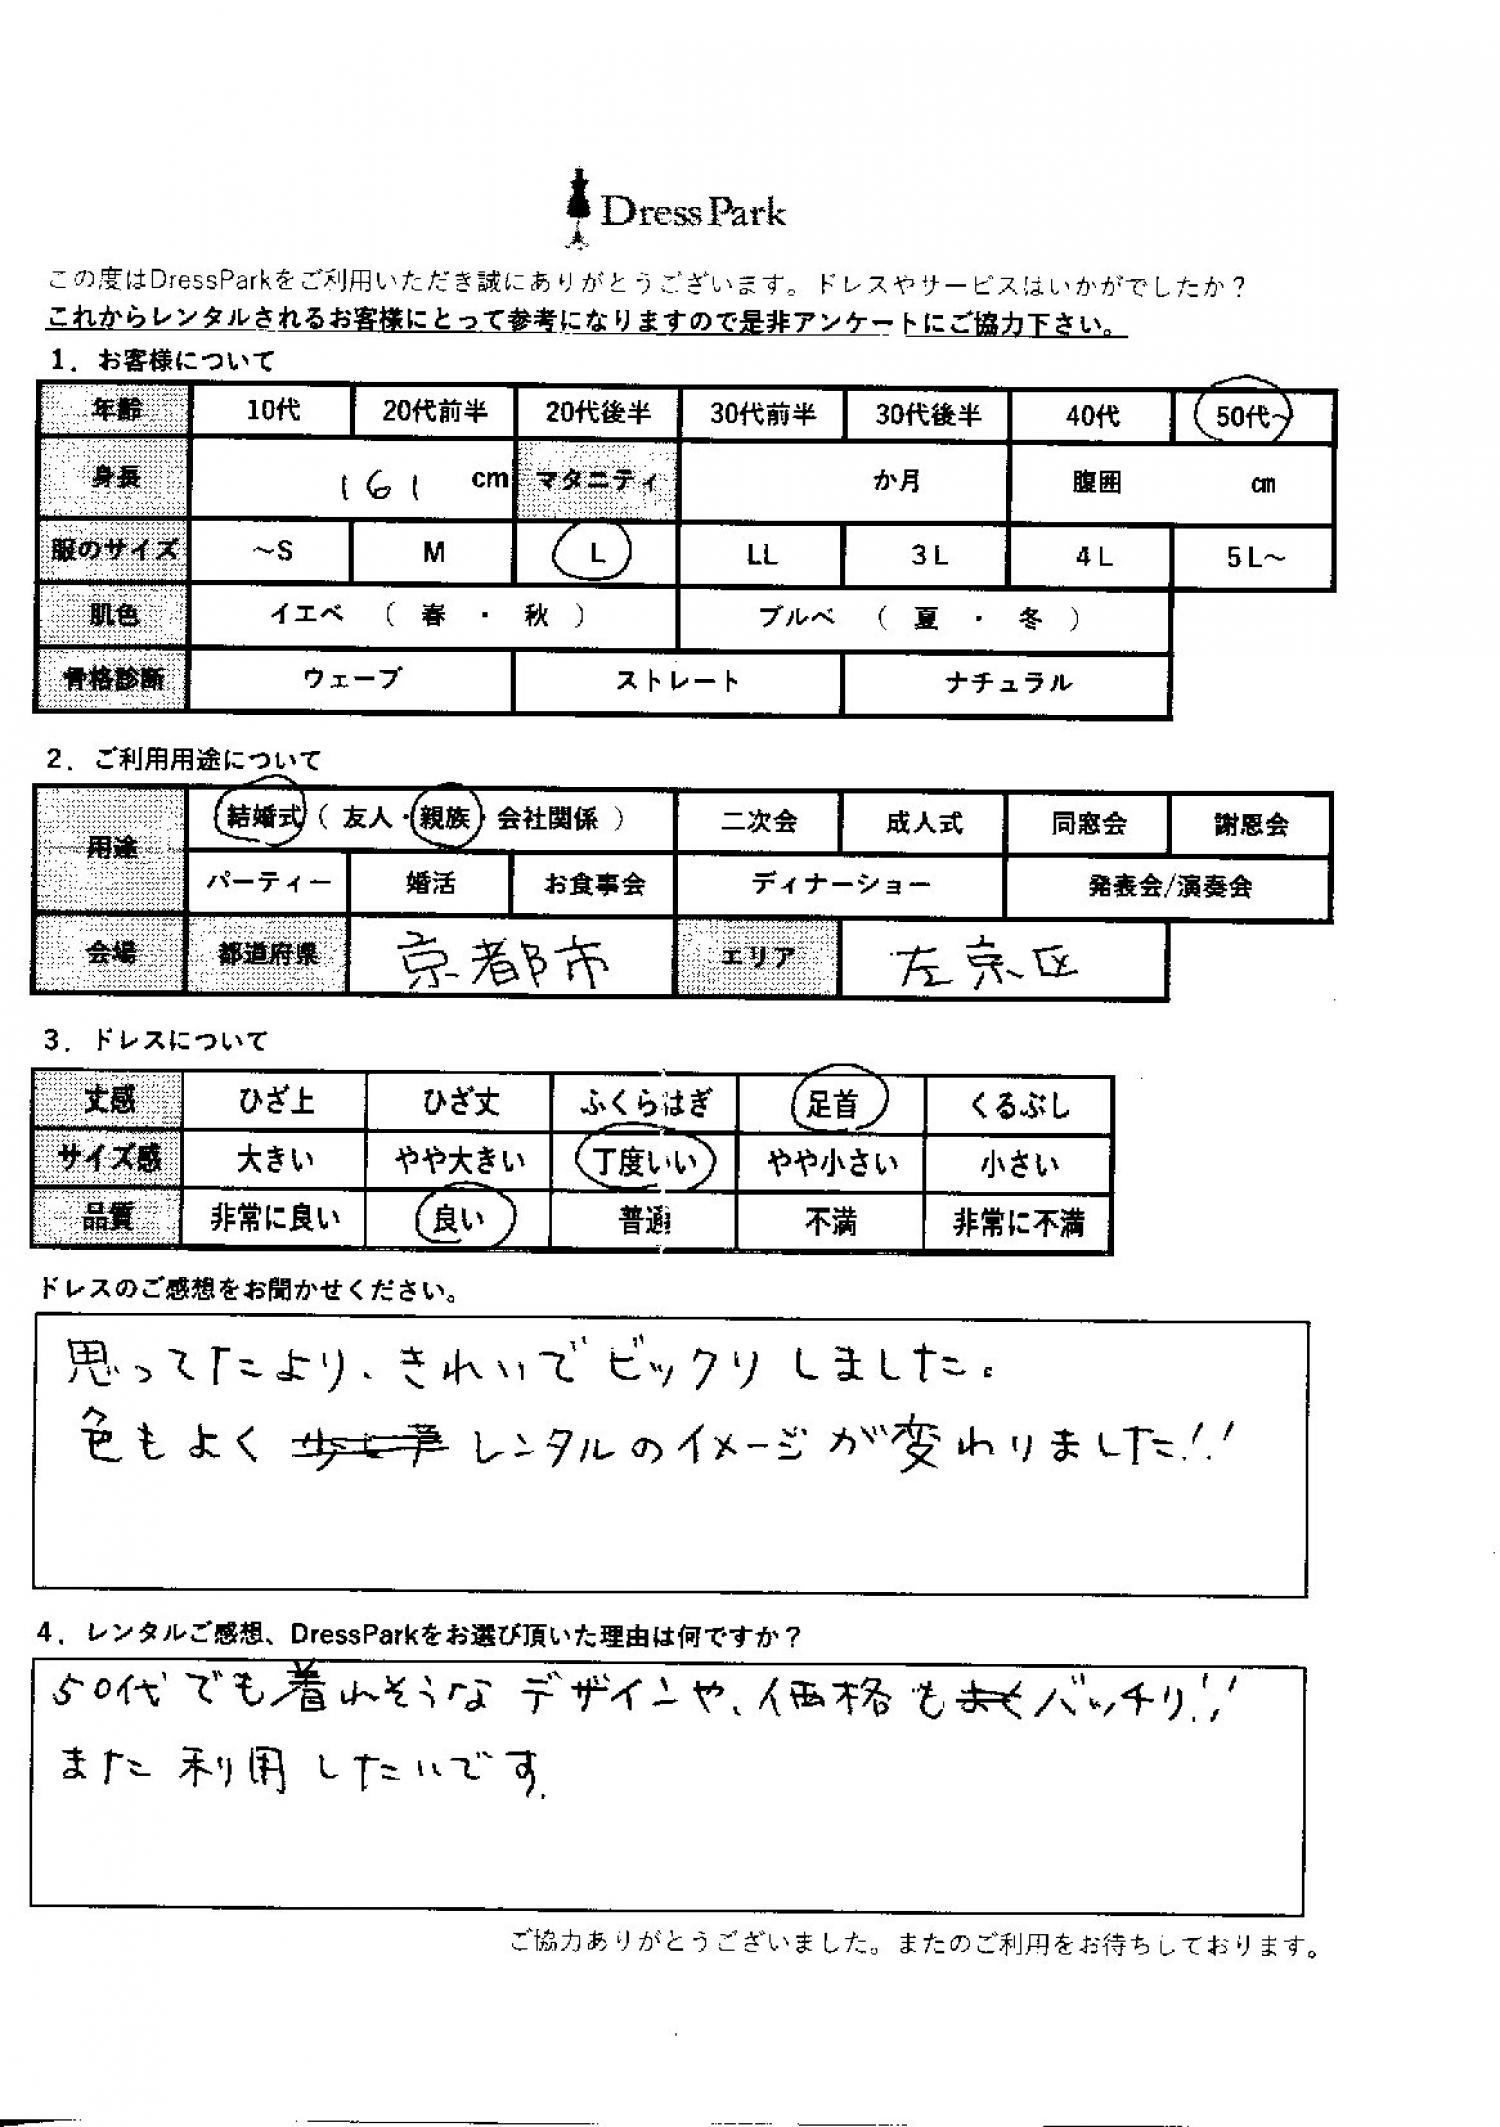 DressPark
この度はDressParkをご利用いただき誠にありがとうございます。ドレスやサービスはいかがでしたか？
これからレンタルされるお客様にとって参考になりますので是非アンケートにご協力下さい。
1．お客様について
年齢 10代 20代前半 20代後半 30代前半 30代後半 40代 50代～
身長 161 cm マタニティ か月 腹囲 cm
服のサイズ ～S M L LL 3L 4L 5L～
肌色 イエベ （ 春 ・ 秋 ） ブルベ （ 夏 ・ 冬 ）
骨格診断 ウェーブ ストレート ナチュラル
2．ご利用用途について
用途 結婚式（ 友人・親族・会社関係 ） 二次会 成人式 同窓会 謝恩会
パーティー 婚活 お食事会 ディナーショー 発表会/演奏会
会場 都道府県 京都市 エリア 左京区
3．ドレスについて
丈感 ひざ上 ひざ丈 ふくらはぎ 足首 くるぶし
サイズ感 大きい やや大きい 丁度いい やや小さい 小さい
品質 非常に良い 良い 普通 不満 非常に不満
ドレスのご感想をお聞かせください。
思ってたより、きれいでビックリしました。
色もよく レンタルのイメージが変わりました!!
4．レンタルご感想、DressParkをお選び頂いた理由は何ですか？
50代でも着れそうなデザインや、価格もバッチリ!!
また利用したいです.
ご協力ありがとうございました。またのご利用をお待ちしております。